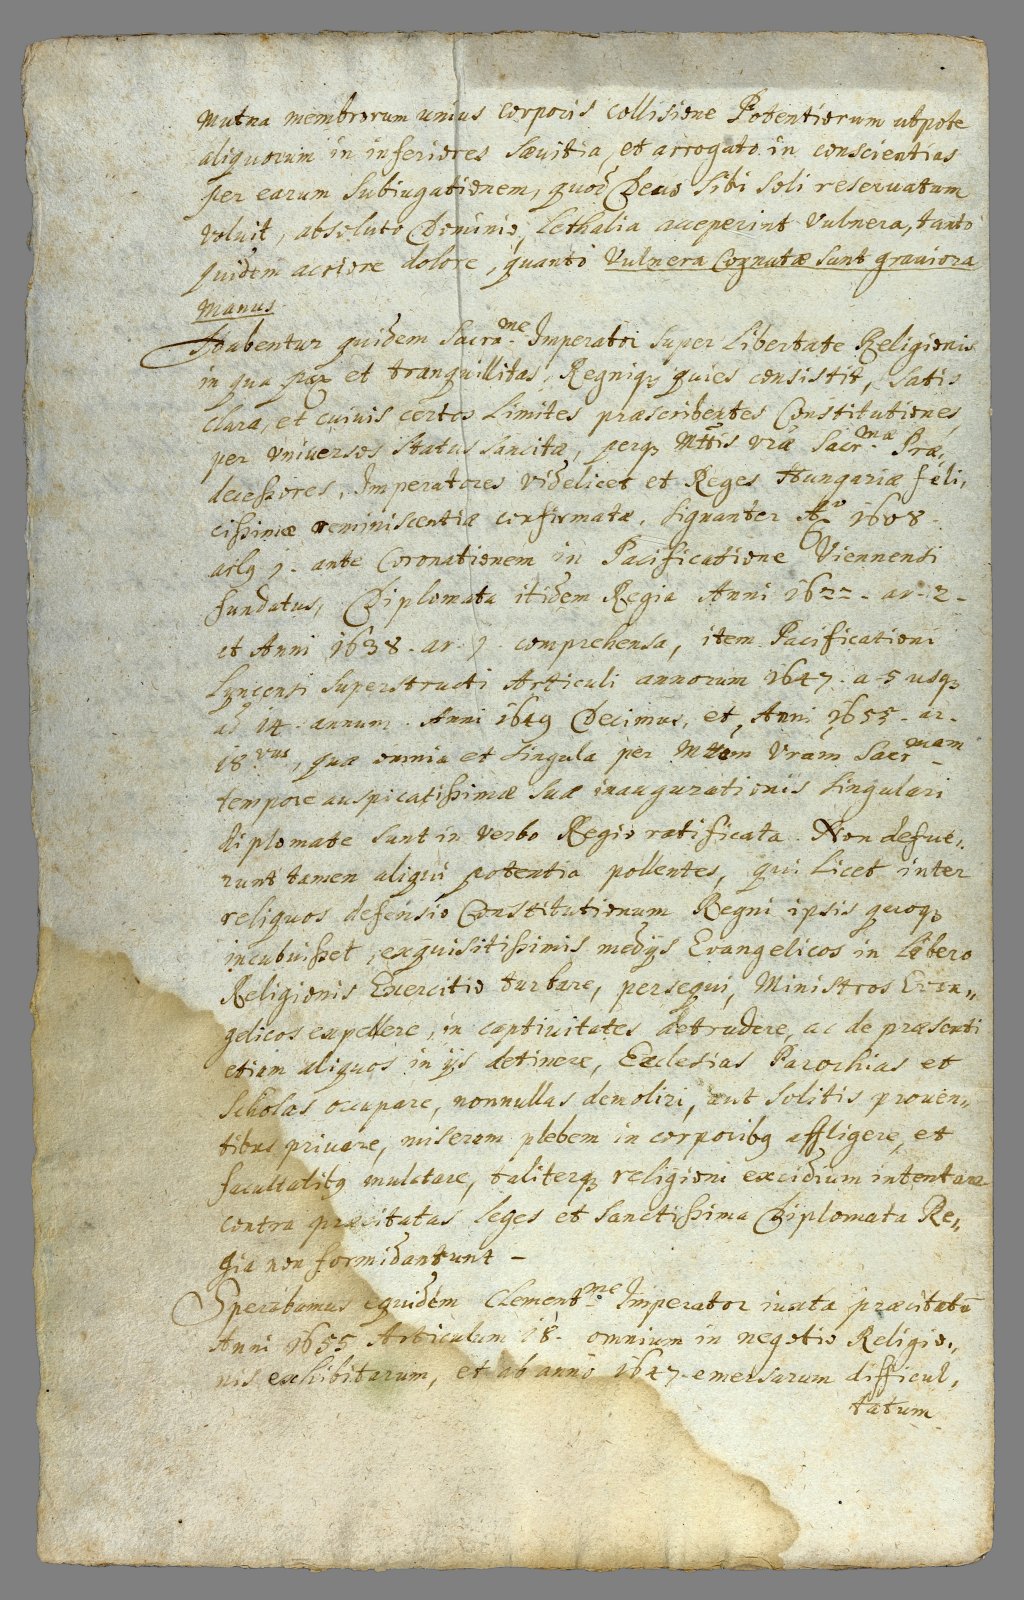 mutua membrorum unius corporis collisione Potentiorum utpote
aliquorum in inferiores Sævitia, et arrogato in conscientias
per earum Subiugationem, quod Deus Sibi Soli reservatum
voluit, absoluto Dominio, Lethalia acceperint Vulnera, tanto
quidem acriore dolore, quanto Vulnera Cognatæ Sunt graviora
Manus
Habentur quidem Sacra.me Imperator Super Libertate Religionis
in qua pax et tranquillitas, Regniq3 quies consistit, Satis
clara, et cuivis certos Limites præscribentes Constitutiones,
per Universos Status Sancitæ, perq3 Mttis vræ Sacr.mæ Præ,
decessores, Imperatores Videlicet et Reges Hungariæ feli,
cissimæ reminiscentiæ confirmatæ, Signanter Ao 1608.
arlq 1. ante Coronationem in Pacificatione Viennensi
fundatus, Diplomata itidem Regia Anni 1622. ar. 2.
et Anni 1638. ar. 1. comprehensa, item Pacificationi
Lyncensi Superstructi Articuli annorum 1647. a 5 usq3
ad 14. annum. Anni 1649 Decimus, et, Anni 1655. ar.
18.vus, quæ omnia et Singula per Mttem Vram Sacr.mam
tempore auspicatissimæ Suæ inaugurationis Singulari
diplomate Sunt in verbo Regio ratificata. Non defue,,
runt tamen aliqui potentia pollentes, qui Licet inter
reliquos defensio Constitutionum Regni ipsis quoq3
incubuisset, exquisitissimis medijs Evangelicos in Libero
Religionis Exercitio turbare, persequi, Ministros Evan,,
gelicos expellere, in captivitates detrudere, ac de præsenti
etiam aliquos in ijs detinere, Ecclesias Parochias et
Scholas occupare, nonnullas demoliri, aut Solitis proven,,
tibus privare, miseram plebem in corporibq affligere, et
facultatibq mulctare, taliterq3 religioni excidium intentare
contra præcitatas leges et Sanctissima Diplomata Re,,
gia non formidantunt –
Sperabamus equidem Clement.me Imperator iuxta præcitatū
Anni 1655 Articulum 18. omnium in negotio Religio,,
nis exhibitarum, et ab anno 1647. emersarum difficul,
tatum